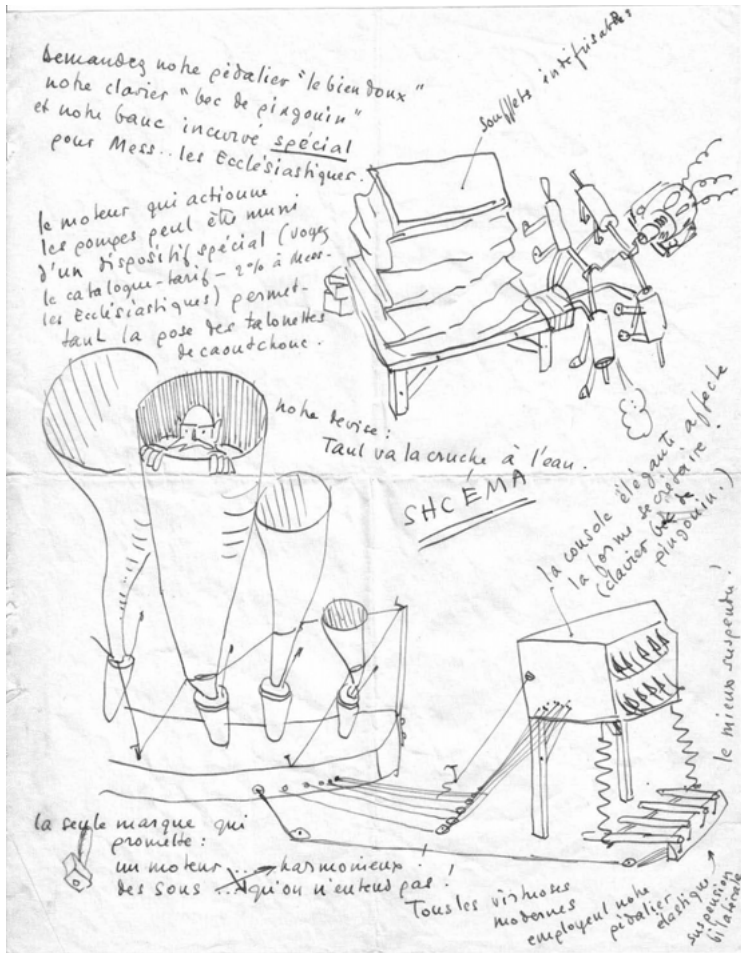 Demandez notre pédalier "le bien doux"
notre clavier "bec de pingouin"
et notre banc incurvé spécial
pour Mess.. les Ecclésiastiques.
soufflets inusables
le moteur qui actionne
les pompes peut être muni
d'un dispositif spécial (voyez
le catalogue-tarif – 2% à Mess-
les Ecclésiastiques) permet-
tant la pose des talonettes
de caoutchouc.
notre devise:
Tant va la cruche à l'eau.
SHCÉMA
la console élégante affecte
la forme secrétaire!
(clavier bec de
pingouin.)
le mieux suspendu!
la seule marque qui
promette:
un moteur ... harmonieux!
des sons ... qu'on n'entend pas!
Tous les virtuoses
modernes
employent notre
pédalier
élastique
suspension
bilatérale